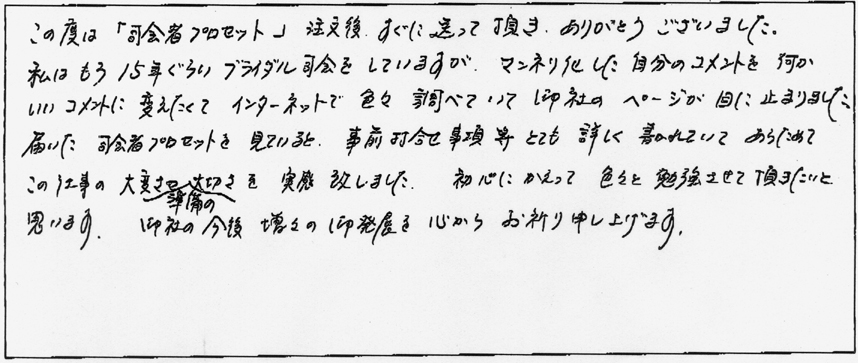 この度は「司会者プロセット」注文後、すぐに送って頂き、ありがとうございました。
私はもう15年ぐらいブライダル司会をしていますが、マンネリ化した自分のコメントを何か
いいコメントに変えたくてインターネットで色々調べていて御社のページが目に止まりました
届いた司会者プロセットを見ていると、事前打合せ事項等とても詳しく書かれていてあらためて
この仕事の大変さや大切さを実感致しました。初心にかえって色々と勉強させて頂きたいと
準備の
思います。御社の今後増々の御発展を心からお祈り申し上げます。